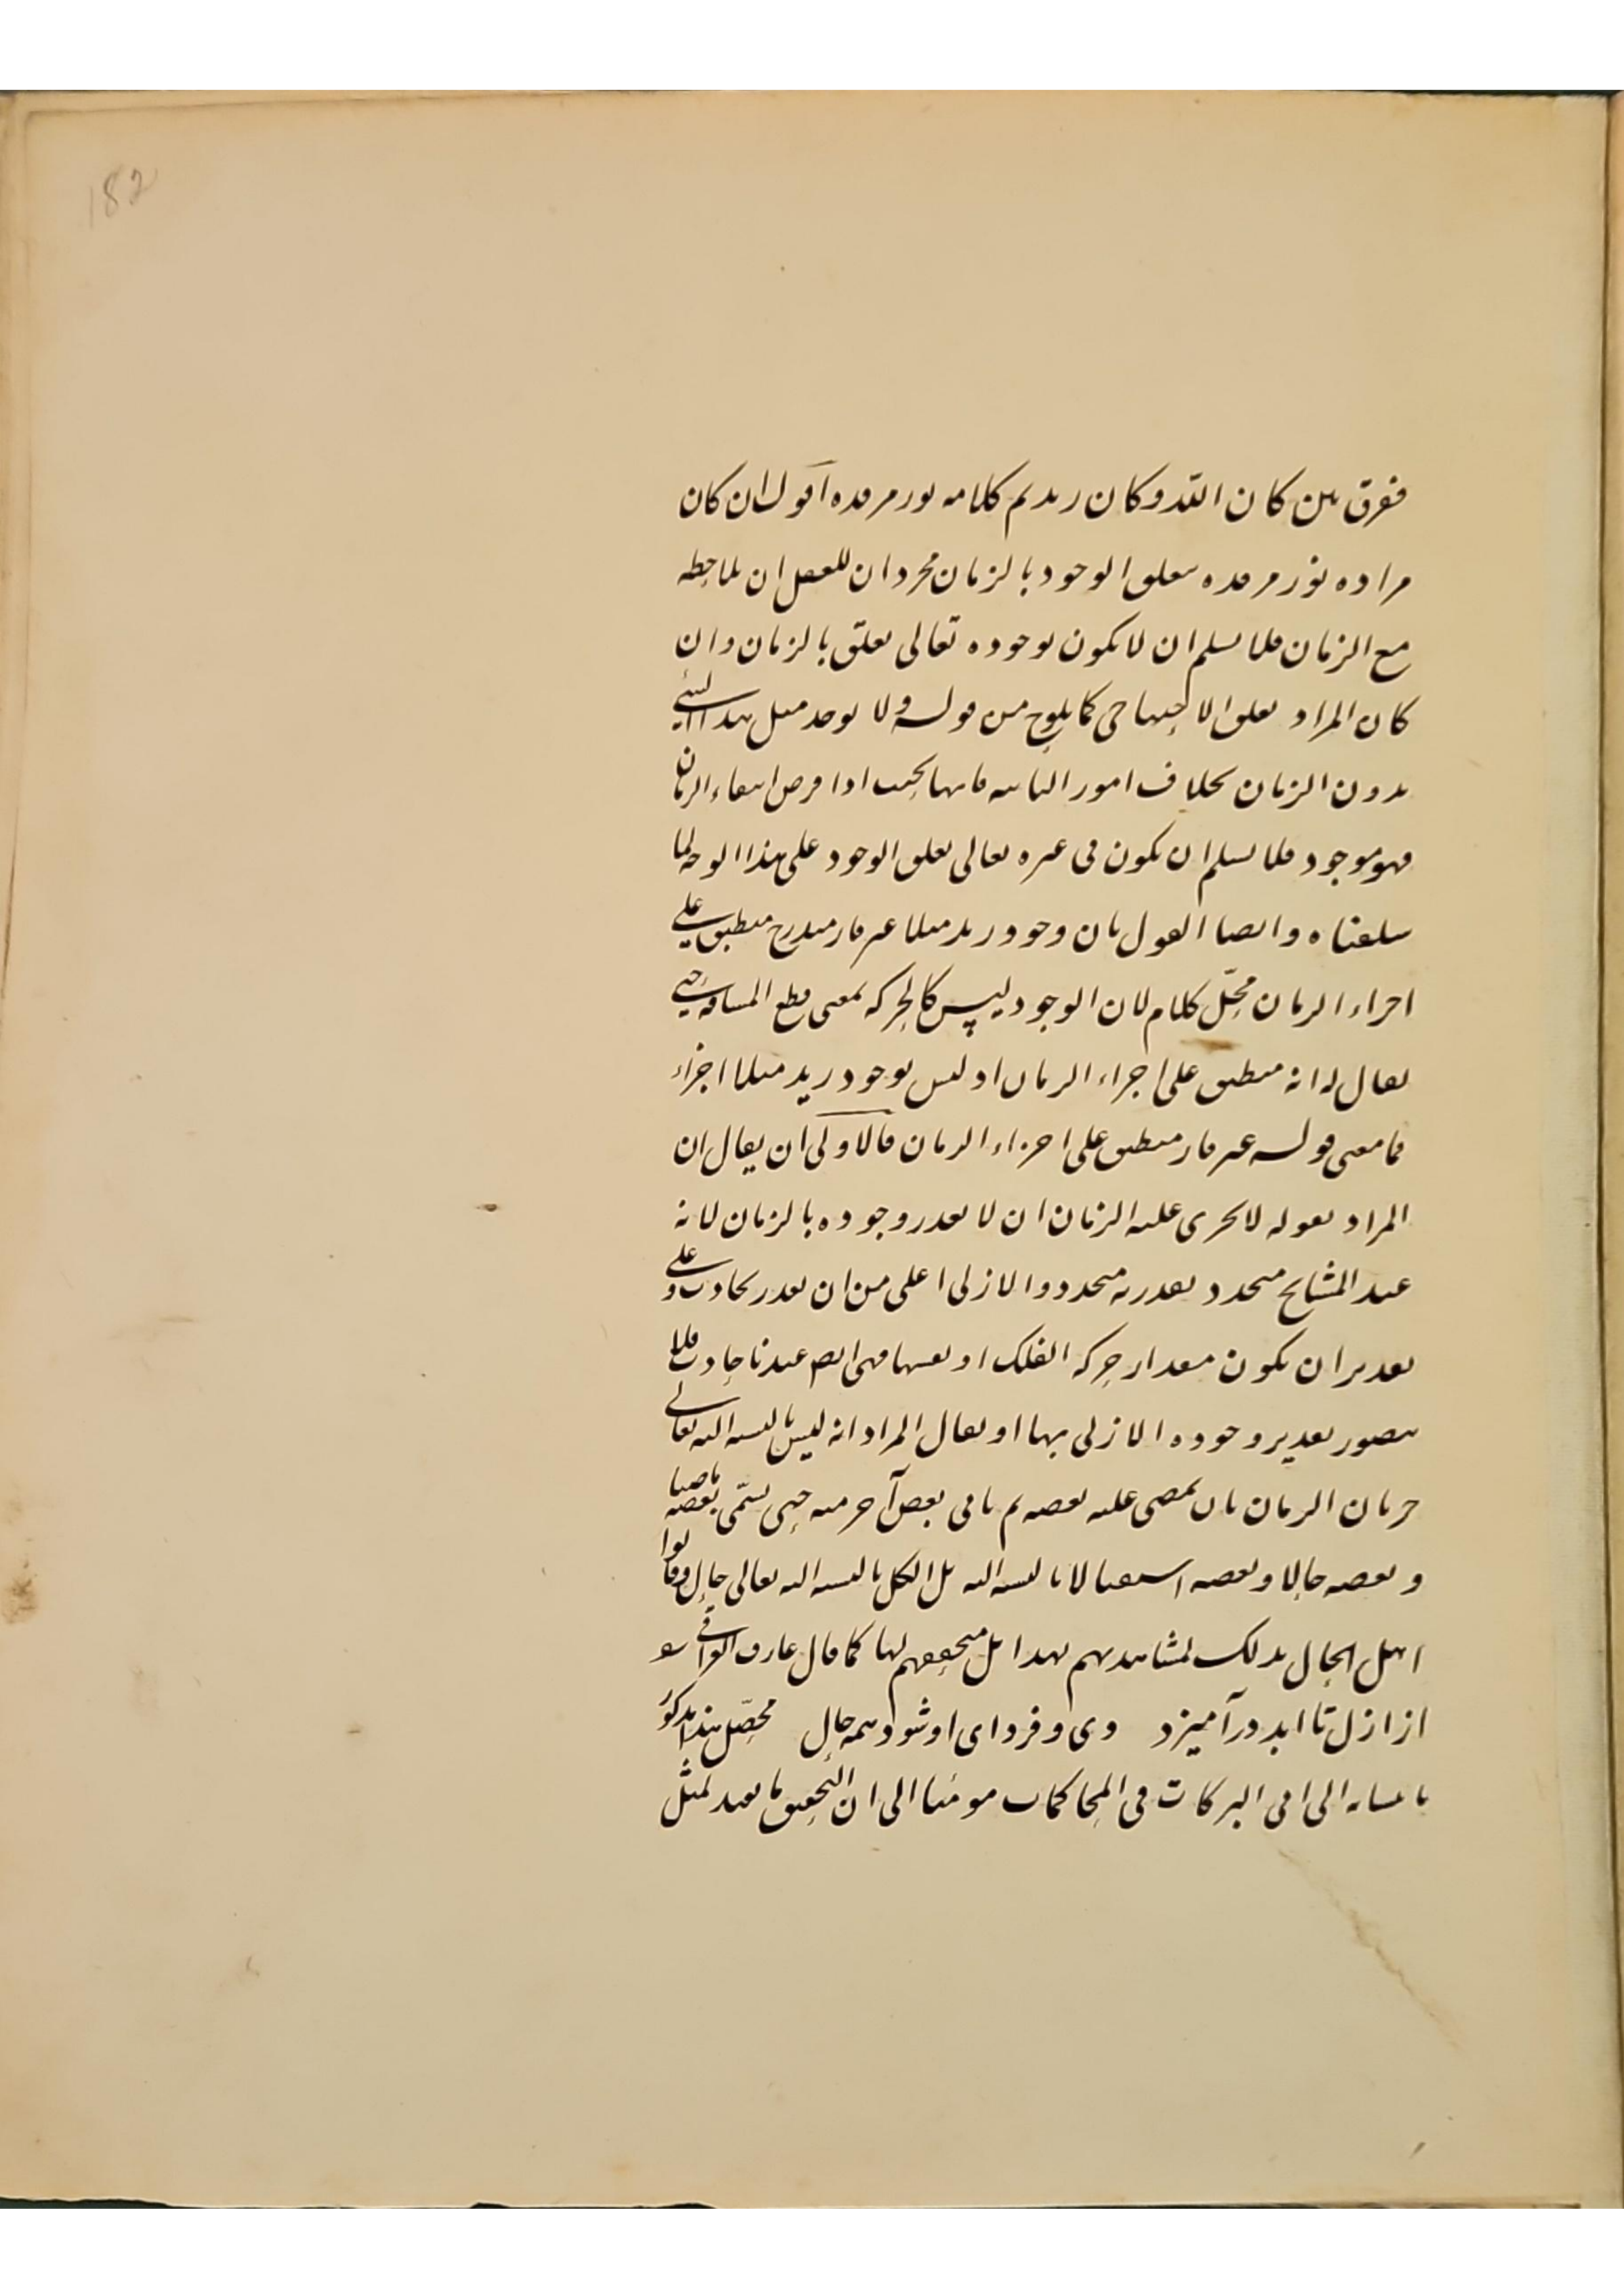 182
ففرق بين كان الله وكان زيد تم كلامه نور مرقده اقول ان كان
مراده نور مرقده بتعلق الوجود بالزمان مجرد ان للعقل ان يلاحظه
مع الزمان فلا نسلم ان لا يكون لوجوده تعالى تعلق بالزمان وان
كان المراد تعلق الاحتياج كما يلوح من قوله ولا يوجد مثل هذا الشئ
بدون الزمان بخلاف امور الثابتة فانها بحيث اذا فرض انتفاء الزمان
فهو موجود فلا نسلم ان يكون فى غيره تعالى تعلق الوجود على هذا الوجه لما
سلفناه وايضا القول بان وجود زيد مثلا غير قار متدرج منطبق على
اجزاء الزمان محل كلام لان الوجود ليس كالحركة بمعنى قطع المسافة حتى
يقال له انه منطبق على اجزاء الزمان اذ ليس لوجود زيد مثلا اجزاء
فما معنى قوله غير قار منطبق على اجزاء الزمان فالاولى ان يقال ان
المراد بقوله لا يجرى عليه الزمان ان لا يقدر وجوده بالزمان لانه
عند المشايخ متجدد يقدر به متجدد والازلى اعلى من ان يقدر بحادث وعلى
تقدير ان يكون مقدار حركة الفلك او نفسها فهى ايض عندنا حادث فلا
يتصور تقدير وجوده الازلى بها او يقال المراد انه ليس بالنسبة اليه تعالى
جريان الزمان بان يمضى عليه بعضه ثم يأتى بعض آخر منه حتى يسمّى بعضه ماضيا
وبعضه حالا وبعضه استقبالا بالنسبة اليه بل الكل بالنسبة اليه تعالى حال وقالوا
اهل الحال بذلك لمشاهدتهم هذا بل متحققهم لها كما قال عارف العراقى شعر
از ازل تا ابد در آميزد دى و فرداى او شود همه حال محصّل هذا مذكور
بانتسابه الى ابى البركات فى المحاكمات مومئا الى ان التحقيق ما يفيد لمثل